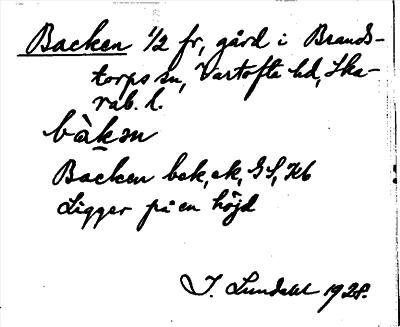 Backen 1/2 fr, gård i Brands-
torps sn, Vartofta hd, Ska-
rab. l.
bàkɘn
Backen bek, ek, GS, Hb
Ligger på en höjd
I. Lundahl 1928.